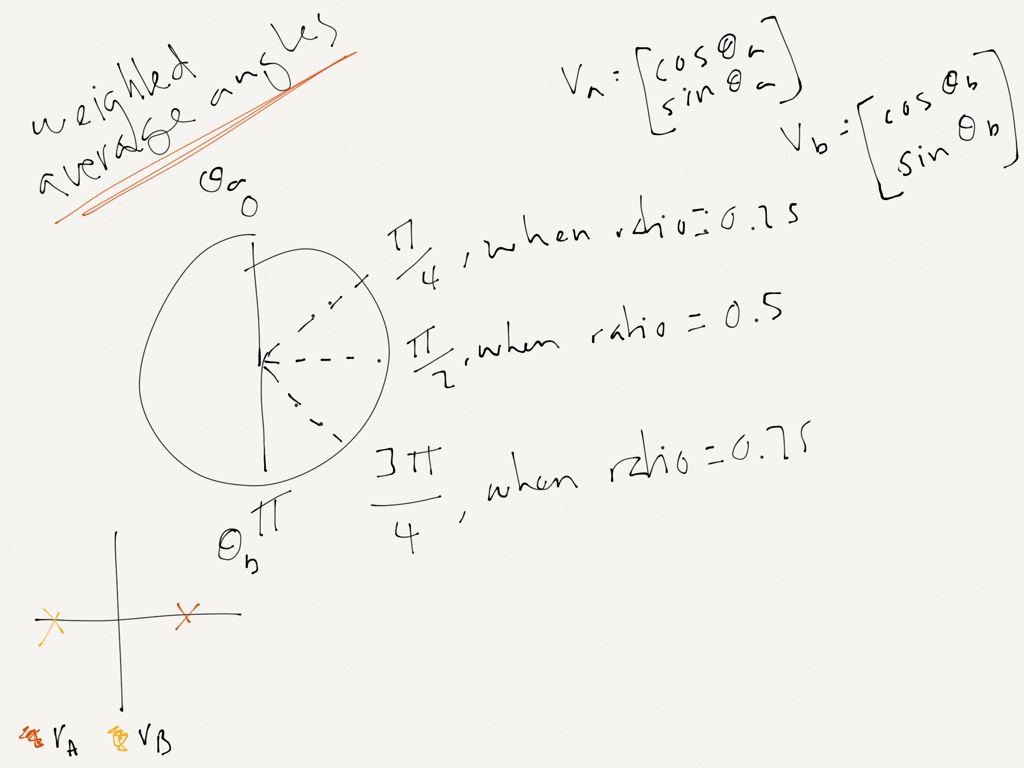 weighted
average angles
Va = [cos θa
sin θa]
Vb = [cos θb
sin θb]
θa
0
π/4, when ratio = 0.25
π/2, when ratio = 0.5
3π/4, when ratio = 0.75
π
θb
VA VB